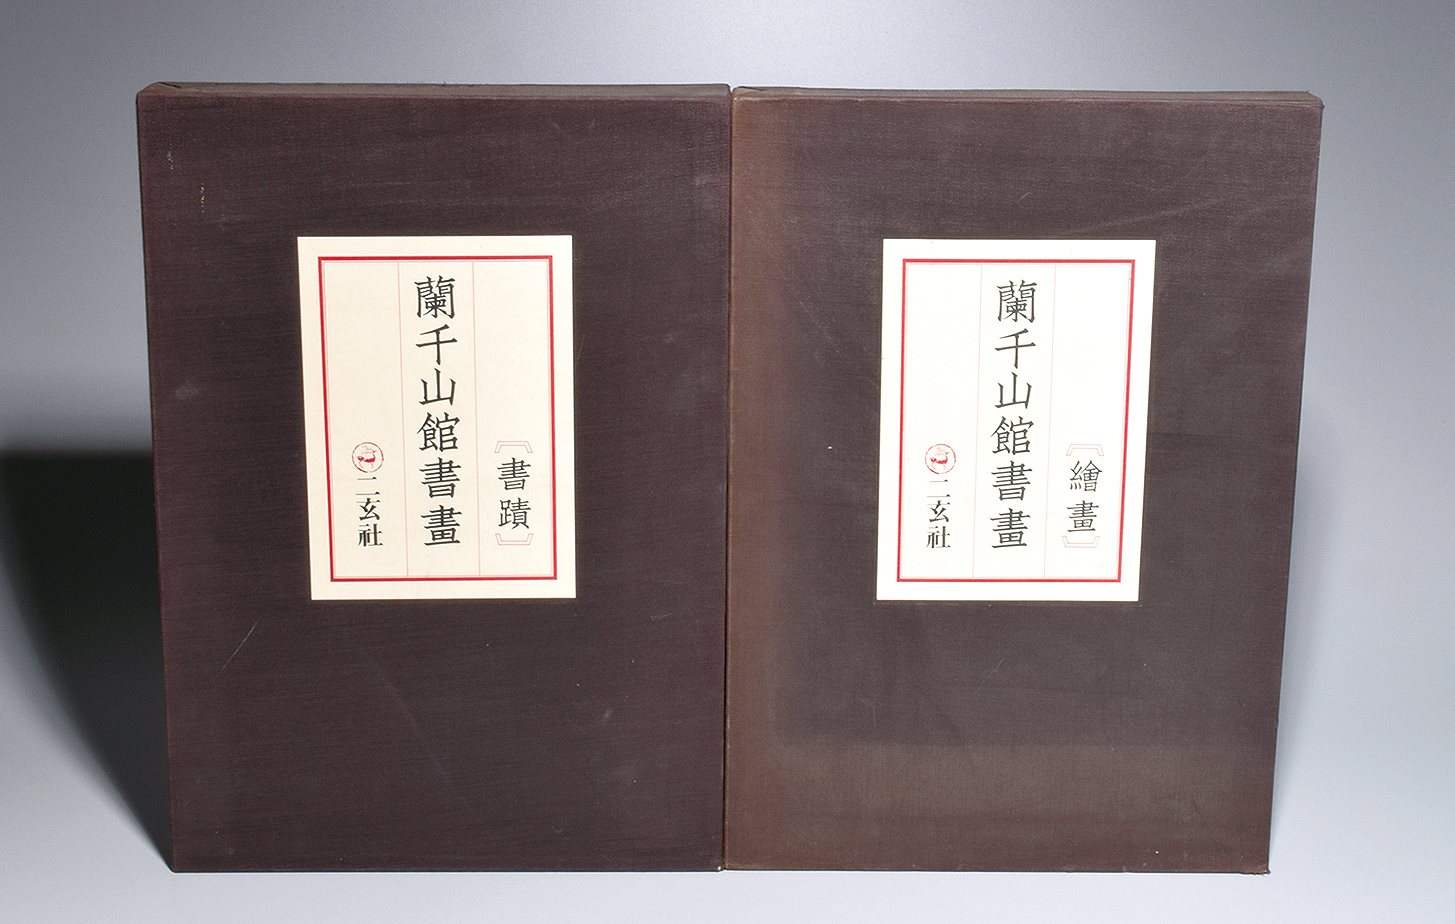 〔書蹟〕
蘭千山館書畫
二玄社
〔繪畫〕
蘭千山館書畫
二玄社